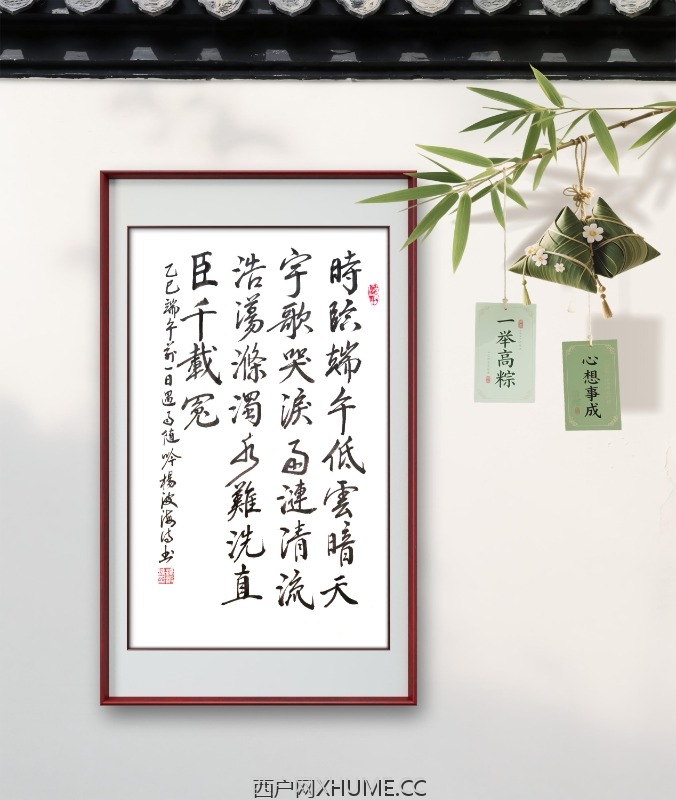 時臨端午低雲暗天
宇歌哭淚雨漣清流
浩蕩滌濁水難洗直
臣千載冤
乙巳端午前一日遇雨随吟楊波海诗书
一举高粽
心想事成
西户网XHUME.CC